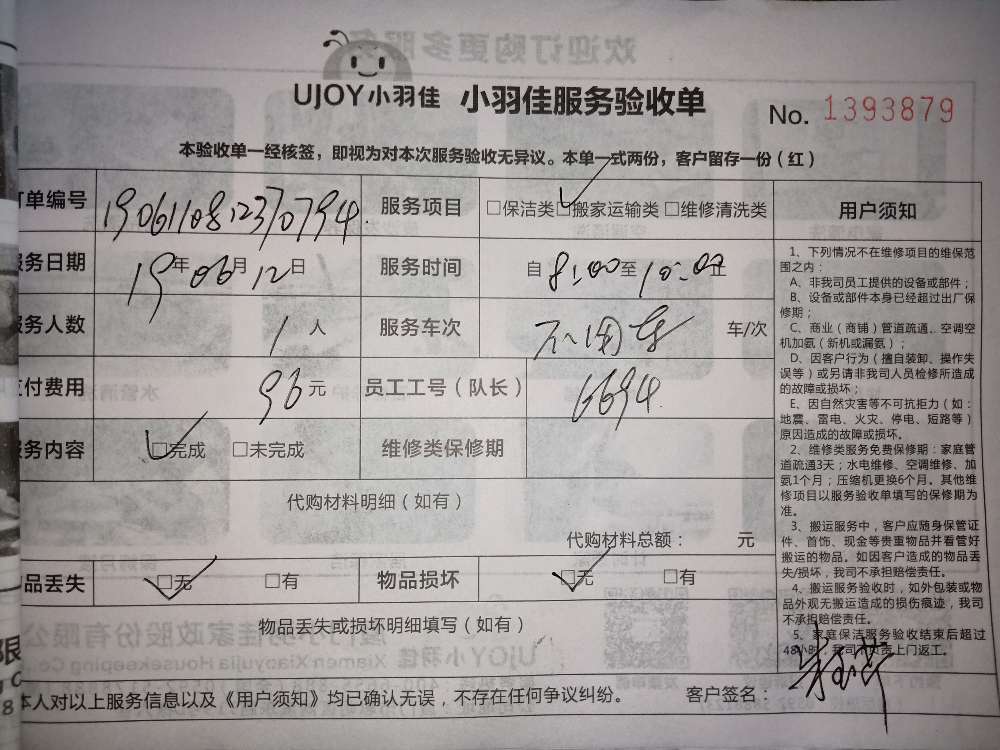 UJOY小羽佳 小羽佳服务验收单
No. 1393879
本验收单一经核签，即视为对本次服务验收无异议。本单一式两份，客户留存一份（红）
订单编号 190611081237079 4 服务项目 □保洁类 □搬家运输类 □维修清洗类
服务日期 19年06月12日 服务时间 自8:00至10:00止
服务人数 1人 服务车次 不用车 车/次
支付费用 96元 员工工号（队长） 6694
服务内容 □完成 □未完成 维修类保修期
代购材料明细（如有）
代购材料总额： 元
物品丢失 □无 □有 物品损坏 □无 □有
物品丢失或损坏明细填写（如有）
本人对以上服务信息以及《用户须知》均已确认无误，不存在任何争议纠纷。 客户签名：
用户须知
1、下列情况不在维修项目的维保范
围之内：
A、非我司员工提供的设备或部件；
B、设备或部件本身已经超过出厂保
修期；
C、商业（商铺）管道疏通、空调空
机加氨（新机或漏氨）；
D、因客户行为（擅自装卸、操作失
误等）或另请非我司人员检修所造成
的故障或损坏；
E、因自然灾害等不可抗拒力（如：
地震、雷电、火灾、停电、短路等）
原因造成的故障或损坏。
2、维修类服务免费保修期：家庭管
道疏通3天；水电维修、空调维修、加
氨1个月；压缩机更换6个月。其他维
修项目以服务验收单填写的保修期为
准。
3、搬运服务中，客户应随身保管证
件、首饰、现金等贵重物品并看管好
搬运的物品。如因客户造成的物品丢
失/损坏，我司不承担赔偿责任。
4、搬运服务验收时，如外包装或物
品外观无搬运造成的损伤痕迹，我司
不承担赔偿责任。
5、家庭保洁服务验收结束后超过
48小时，我司不负责上门返工。